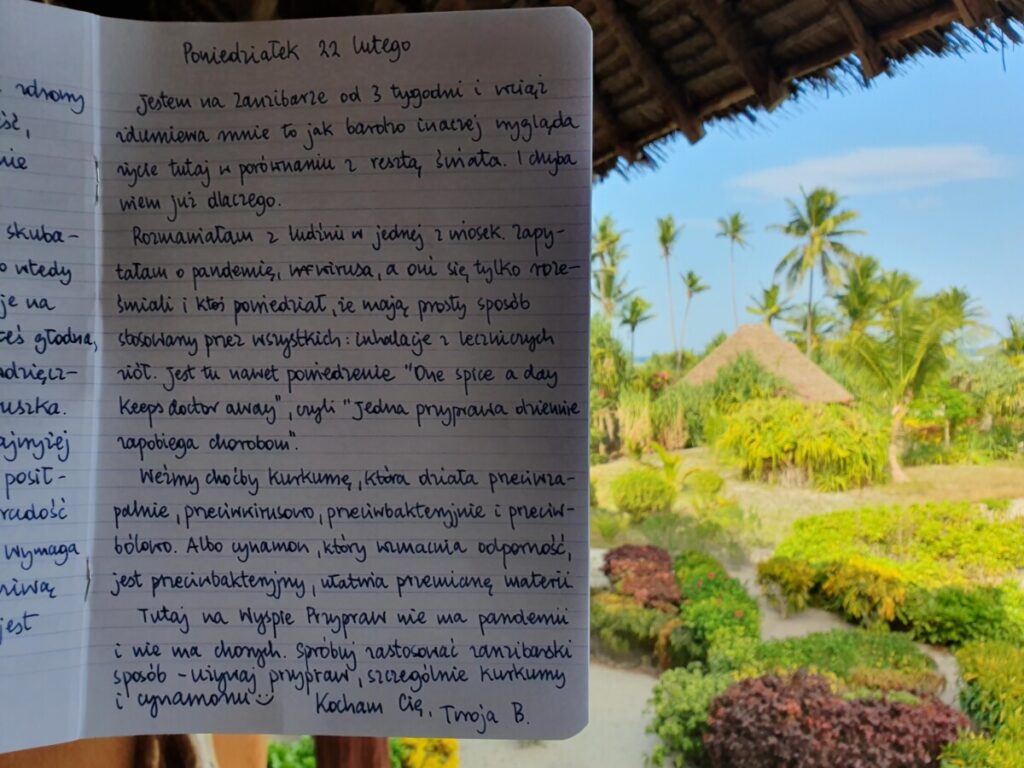 zdrowy
nie
skuba-
o wtedy
je na
głodna,
uszka.
posił-
radość
Wymaga
jest
Poniedziałek 22 lutego
Jestem na Zanzibarze od 3 tygodni i wciąż
zdumiewa mnie to jak bardzo inaczej wygląda
życie tutaj w porównaniu z resztą świata. I chyba
wiem już dlaczego.
Rozmawiałam z ludźmi w jednej z wiosek. Zapy-
tałam o pandemię, wirusa, a oni się tylko roze-
śmiali i ktoś powiedział, że mają prosty sposób
stosowany przez wszystkich: inhalacje z leczniczych
ziół. Jest tu nawet powiedzenie "One spice a day
keeps doctor away", czyli "Jedna przyprawa dziennie
zapobiega chorobom".
Weźmy choćby kurkumę, która działa przeciwza-
palnie, przeciwwirusowo, przeciwbakteryjnie i przeciw-
bólowo. Albo cynamon, który wzmacnia odporność,
jest przeciwbakteryjny, ułatwia przemianę materii.
Tutaj na Wyspie Przypraw nie ma pandemii
i nie ma chorych. Spróbuj zastosować zanzibarski
sposób - używaj przypraw, szczególnie kurkumy
i cynamonu
Kocham Cię, Twoja B.